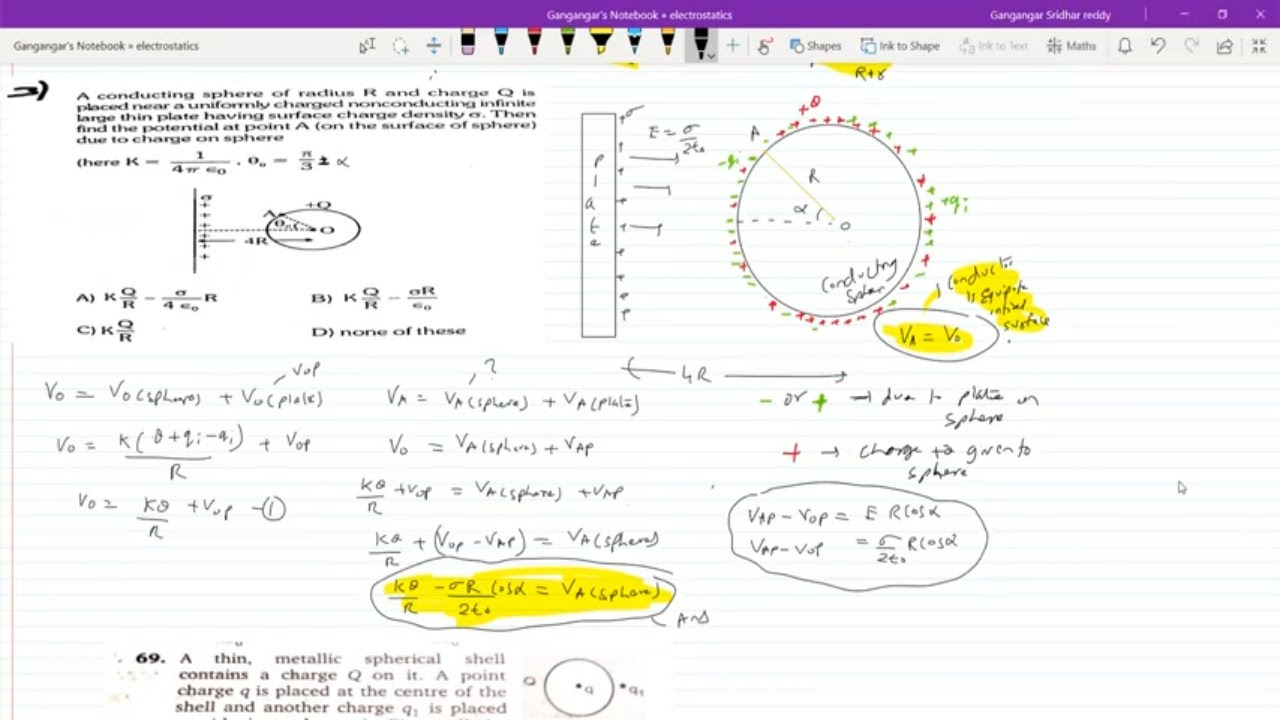 Gangangar's Notebook » electrostatics
Gangangar Sridhar reddy
Gangangar's Notebook » electrostatics
Shapes
Ink to Shape
Ink to Text
Maths
R+r
A conducting sphere of radius R and charge Q is
placed near a uniformly charged nonconducting infinite
large thin plate having surface charge density σ. Then
find the potential at point A (on the surface of sphere)
due to charge on sphere
(here K = 1/4π ∈0 . θ0 = π/3 = α
σ
+Q
A
θ0
O
4R
A) K Q/R − σ/4∈0 R
B) K Q/R − σR/∈0
C) K Q/R
D) none of these
σ
E = σ/2ε0
plate
+Q
A
-qi
R
α
O
+qi
Conducting
Sphere
Conductor
is equipo
tential
surface
VA = V0
4R
- or + → due to plate on
sphere
+ → charge +Q given to
sphere
VOP
V0 = V0(sphere) + V0(plate)
V0 = K(Q+qi-qi)/R + VOP
V0 = KQ/R + VOP -①
?
VA = VA(sphere) + VA(plate)
V0 = VA(sphere) + VAP
KQ/R + VOP = VA(sphere) + VAP
KQ/R + (VOP - VAP) = VA(sphere)
KQ/R - σR/2ε0 cosα = VA(sphere)
Ans
VAP - VOP = E R cosα
VAP - VOP = σ/2ε0 R cosα
69. A thin, metallic spherical shell
contains a charge Q on it. A point
charge q is placed at the centre of the
shell and another charge q1 is placed
Q
q
q1